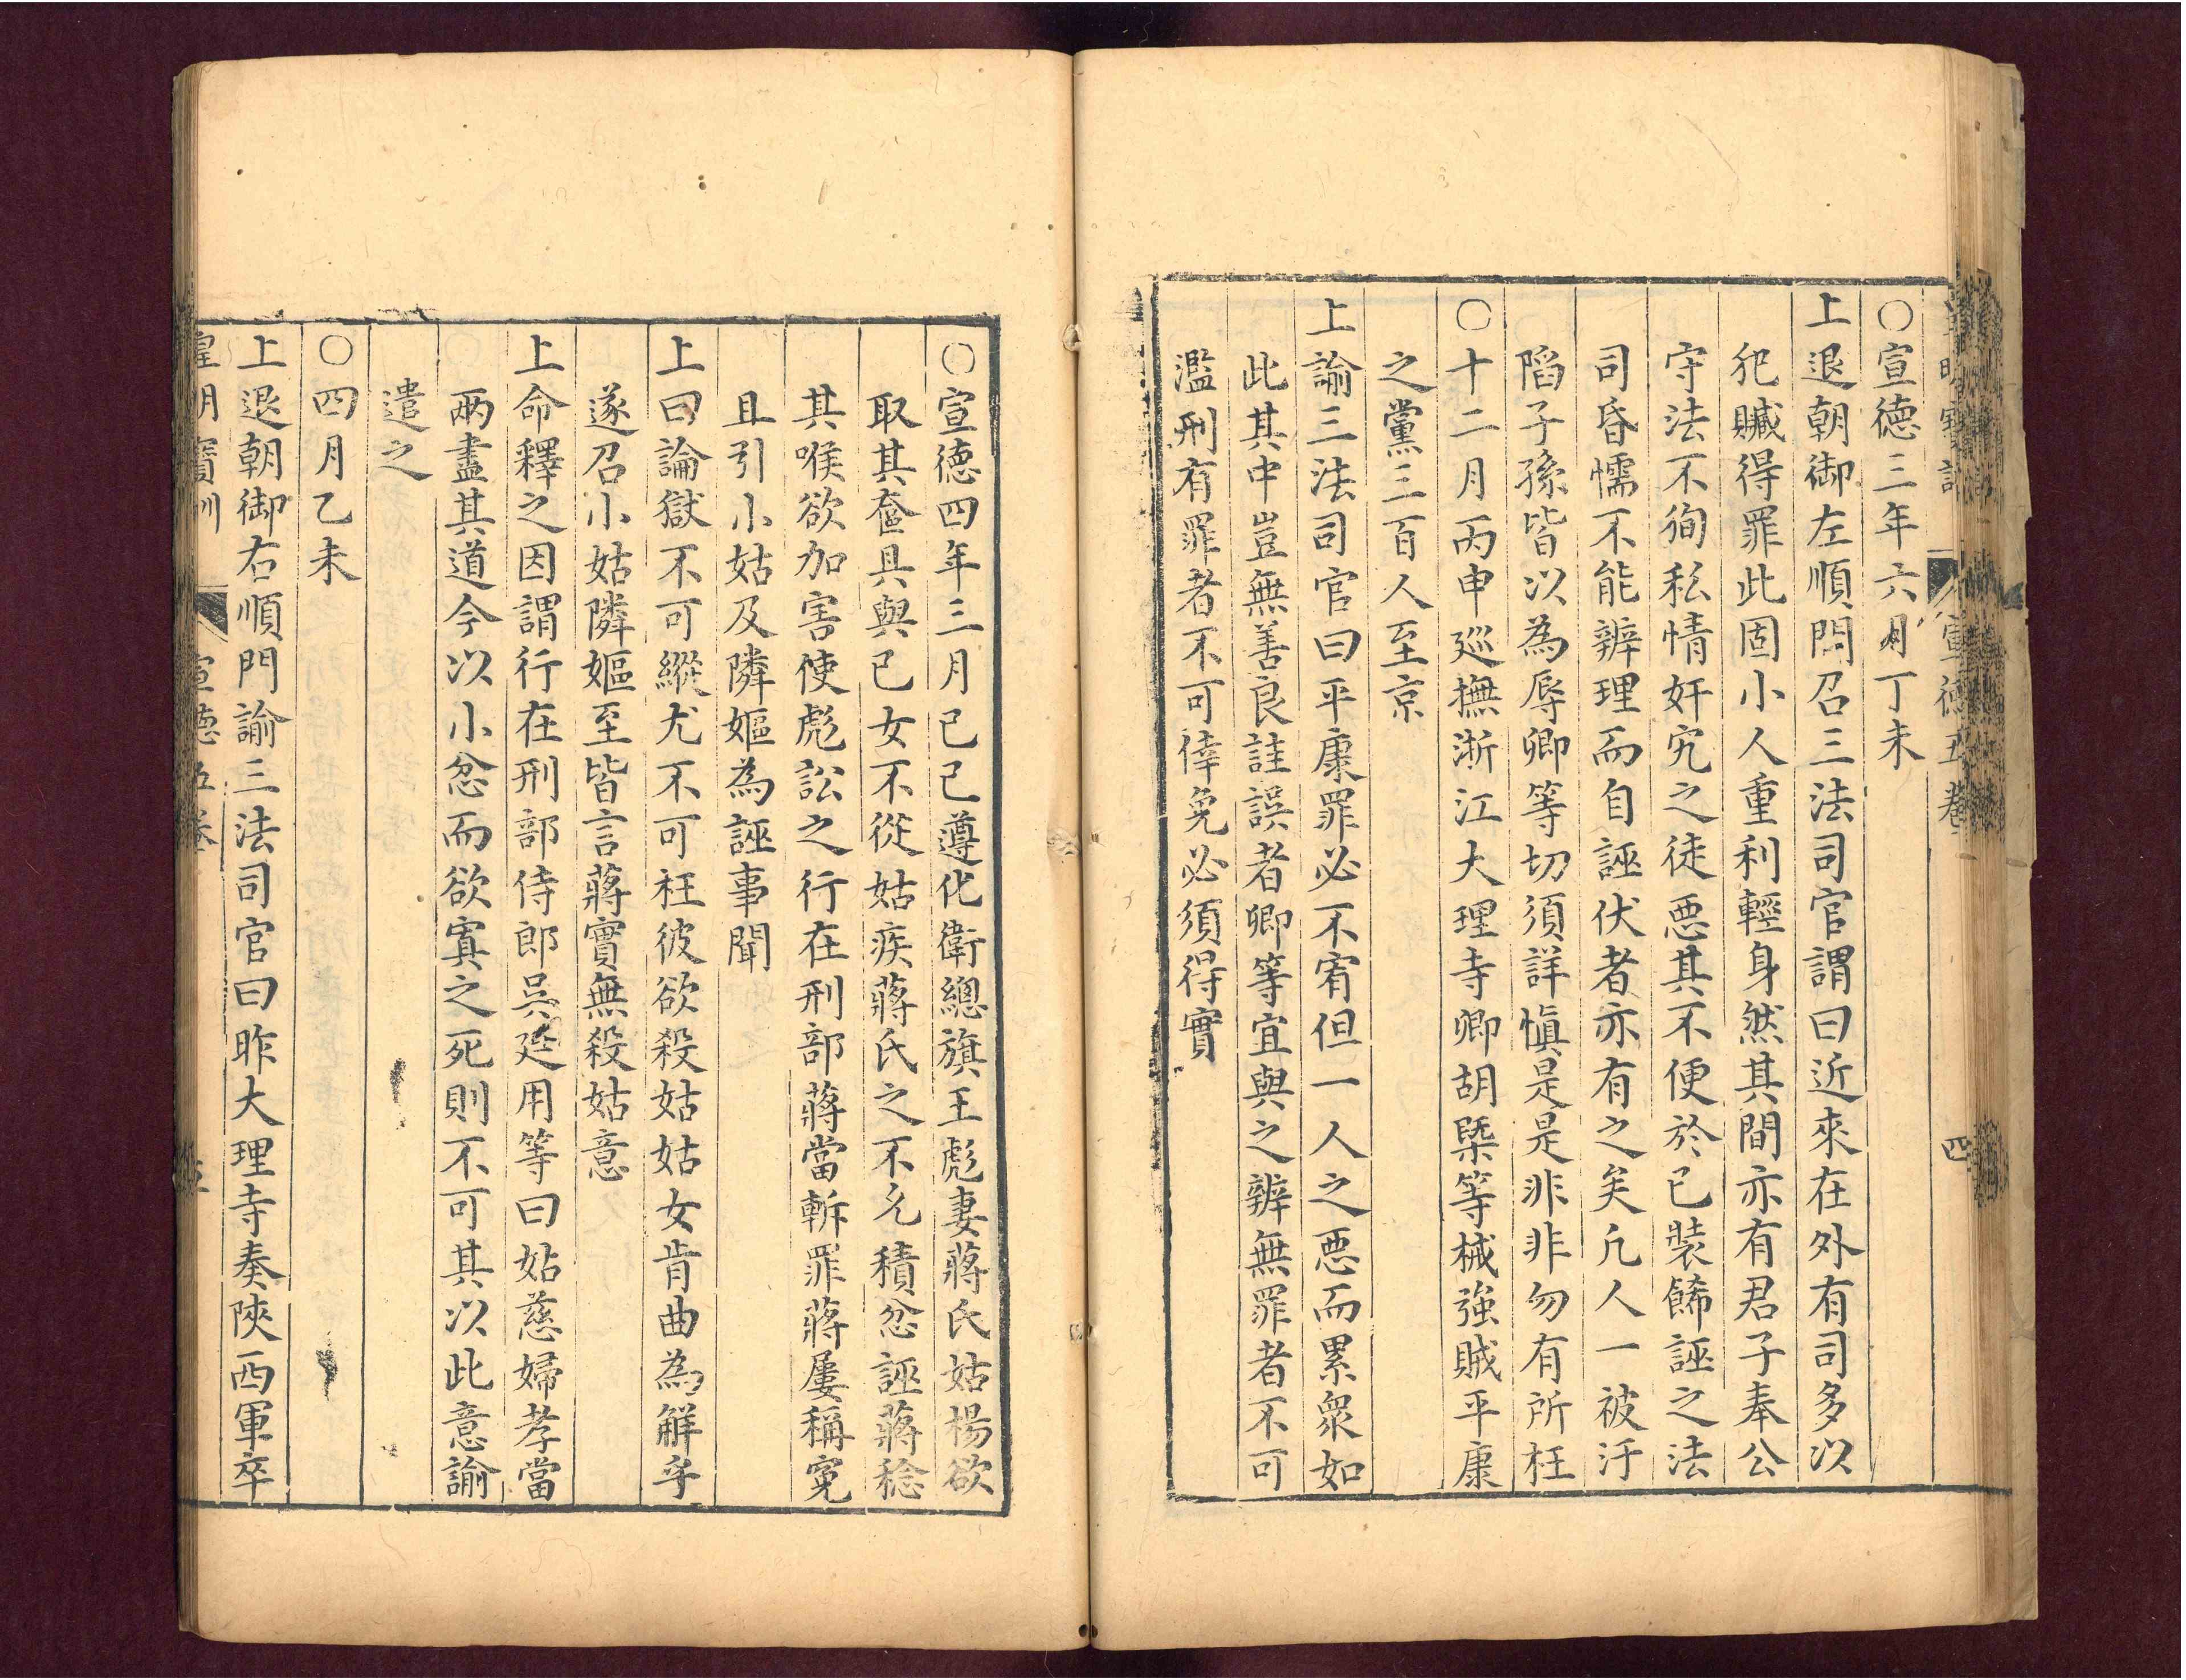 皇明寶訓 宣德五卷 四
○宣德三年六月丁未
上退朝御左順門召三法司官謂曰近來在外有司多以
犯贓得罪此固小人重利輕身然其間亦有君子奉公
守法不徇私情奸宄之徒惡其不便於已裝餙誣之法
司昏懦不能辨理而自誣伏者亦有之矣凢人一被汙
䧟子孫皆以為辱卿等切須詳愼是是非非勿有所枉
○十二月丙申廵撫浙江大理寺卿胡槩等械強賊平康
之黨三百人至京
上諭三法司官曰平康罪必不宥但一人之惡而累衆如
此其中豈無善良詿誤者卿等宜與之辨無罪者不可
濫刑有罪者不可倖免必須得實
○宣德四年三月已已遵化衛總旗王彪妻蔣氏姑楊欲
取其奩具與已女不從姑疾蔣氏之不允積忿誣蔣稔
其喉欲加害使彪訟之行在刑部蔣當斬罪蔣屢稱寃
且引小姑及隣嫗為誣事聞
上曰論獄不可縱尤不可枉彼欲殺姑姑女肯曲為解乎
遂召小姑隣嫗至皆言蔣實無殺姑意
上命釋之因謂行在刑部侍郎吳廷用等曰姑慈婦孝當
兩盡其道今以小忿而欲寘之死則不可其以此意諭
遣之
○四月乙未
上退朝御右順門諭三法司官曰昨大理寺奏陝西軍卒
皇明寶訓 宣德五卷 五